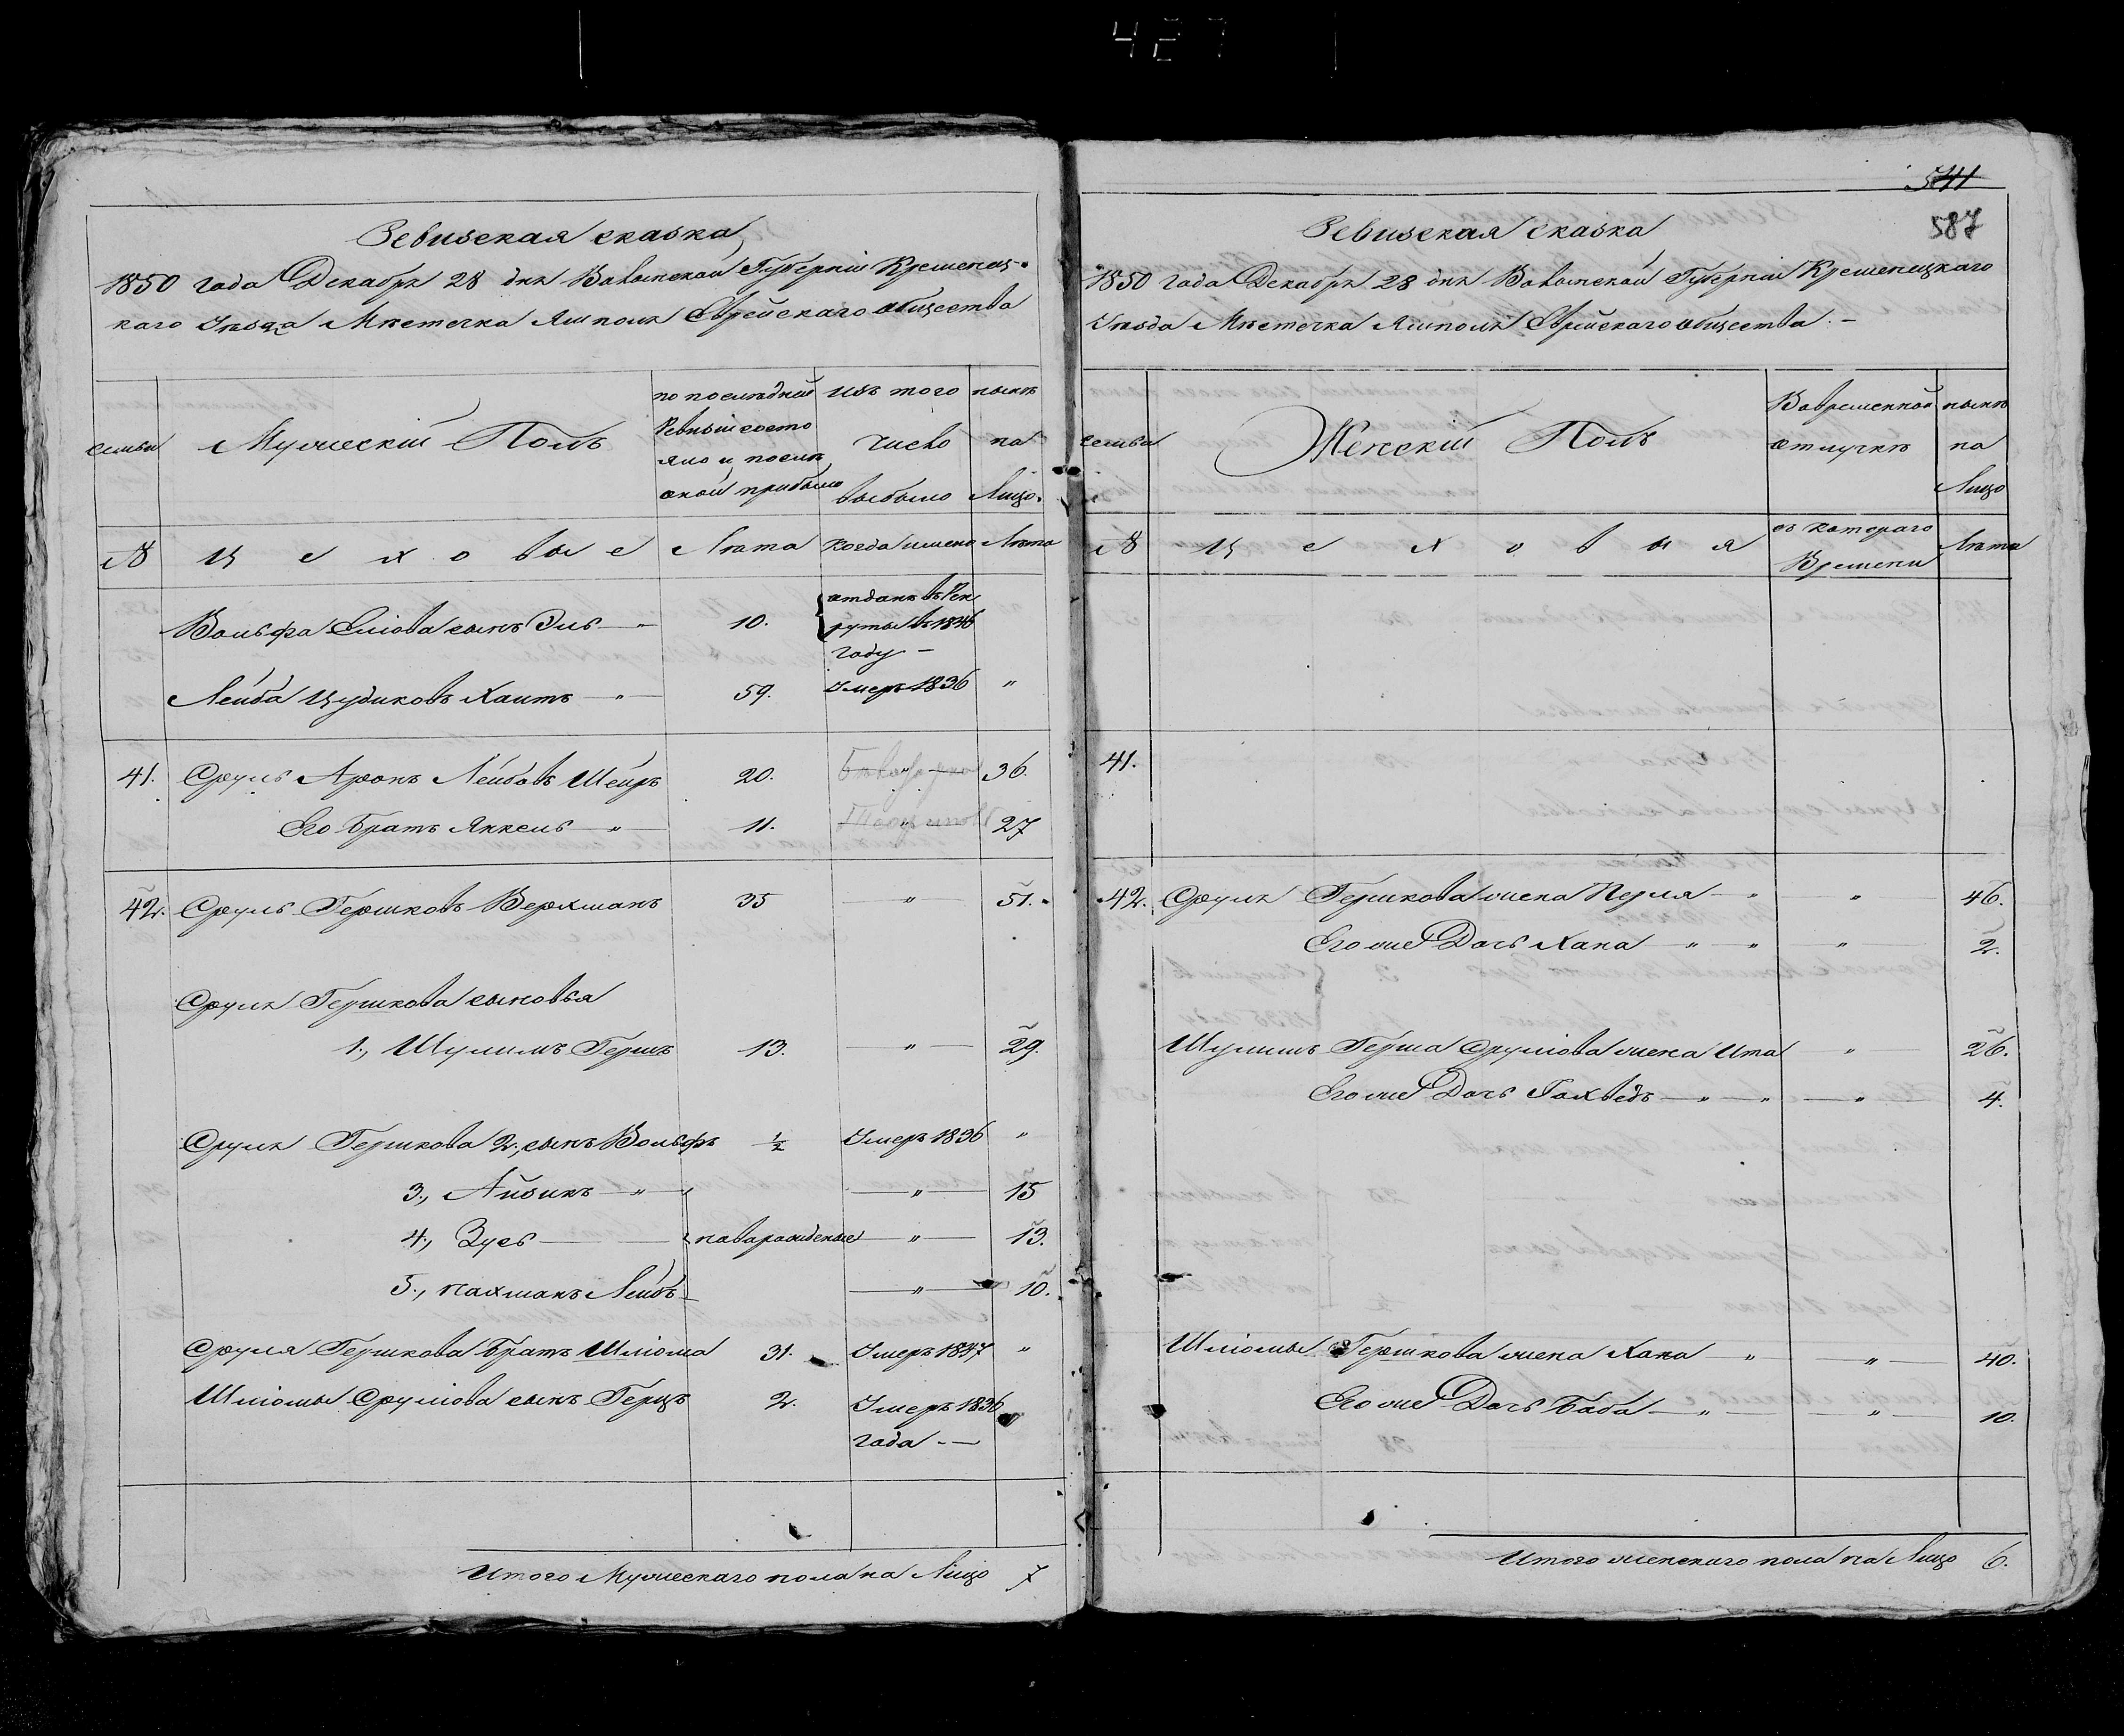 427
Ревизская сказка
1850 года Декабря 28 дня Волынской Губернiи Кременец-
каго Уѣзда Мѣстечка Ямполя Еврейскаго общества
семьи
Мужескiй Полъ
по послѣдней
Ревизiи состо
яло и послѣ
оной прибыло
изъ того
число
выбыло
нынѣ
на
Лицо.
№
Цеховые
Лѣта
когда имено
Лѣта
Вольфа Елiова сынъ Эль — " —
10.
отданъ въ Рек
руты въ 1846
году —
Лейба Цудиковъ Хаитъ — " —
59.
Умеръ 1836
"
41.
Сруль Аронъ Лейбовъ Шейръ
20.
36.
Его Братъ Янкель — " —
11.
27
42.
Сруль Гершковъ Верхманъ
35
"
51.
Сруля Гершкова сыновья
1., Шулимъ Гершъ
13.
"
29.
Сруля Гершкова 2., сынъ Вольфъ
½
Умеръ 1836
"
3., Айзикъ — " —
"
15
4., Зусь —
новарожденые
"
13.
5., Нахманъ Лейбъ
"
10.
Сруля Гершкова Братъ Шлiома
31.
Умеръ 1847
"
Шлiомы Срулiова сынъ Герцъ
2.
Умеръ 1836
года . —
Итого Мужескаго пола на Лицо 7
541
587
Ревизская сказка
1850 года Декабря 28 дня Волынской Губернiи Кременецкаго
Уѣзда Мѣстечка Ямполя Еврейскаго общества. —
семьи
Женскiй Полъ
Вовременной
отлучкѣ
нынѣ
на
Лицо
№
Цеховыя
съ котораго
Времени
Лѣта
41.
42.
Сруля Гершкова жена Перля — " —
"
46.
Его же Дочь Хана — " — " —
"
2.
Шулимъ Герша Срулiова жена Ита
"
26.
Его же Дочь Iохведъ — " — " —
"
4.
Шлiомы Гершкова жена Хана — " —
"
40.
Его же Дочь Баба — " —
"
10.
Итого женскаго пола на Лицо 6.